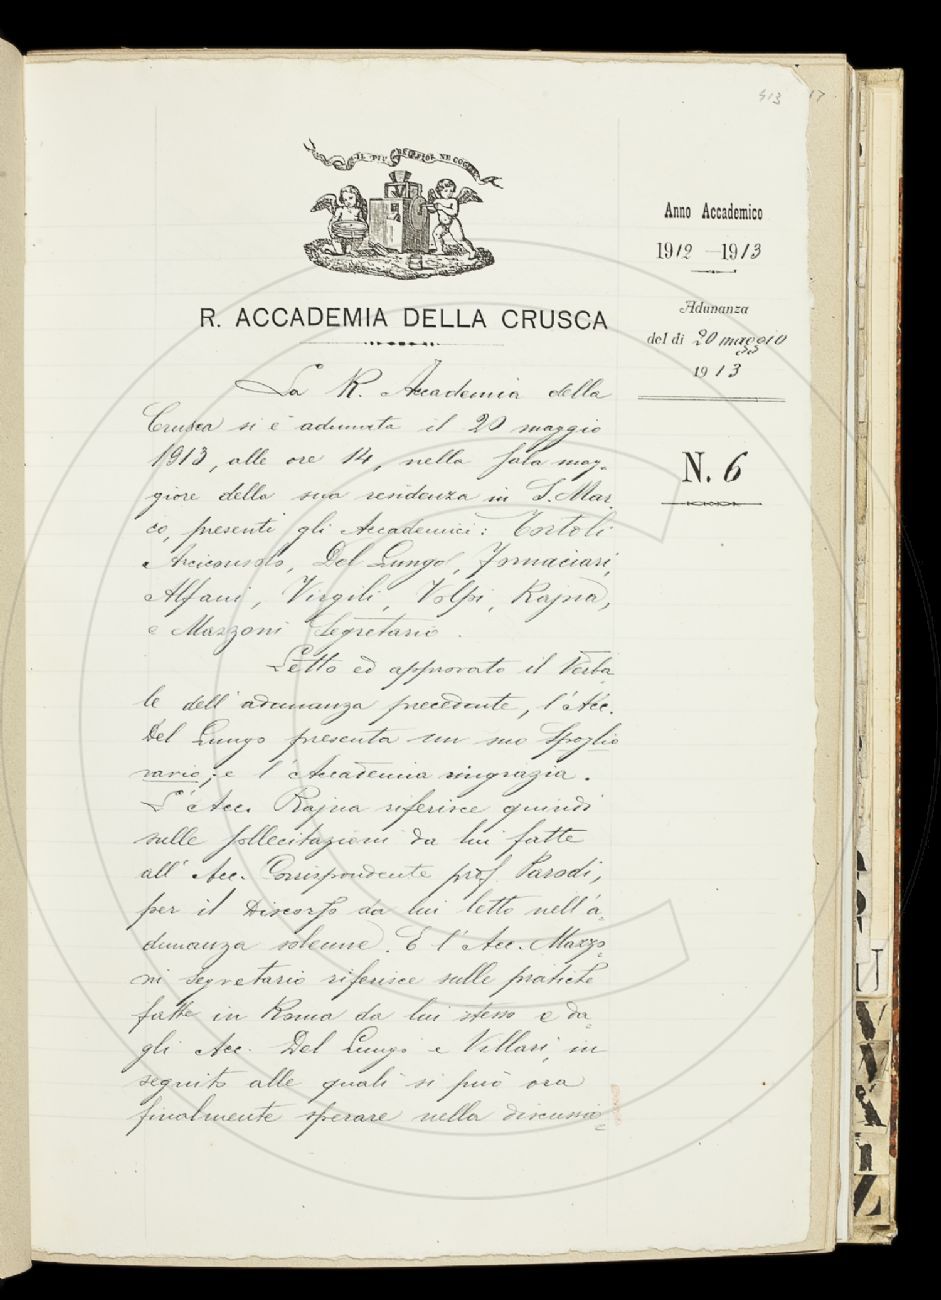 413 17
IL PIÙ BEL FIOR NE COGLIE
R. ACCADEMIA DELLA CRUSCA
Anno Accademico
1912 — 1913
Adunanza
del dì 20 maggio
1913
N. 6
La R. Accademia della
Crusca si è adunata il 20 maggio
1913, alle ore 14, nella sala mag-
giore della sua residenza in S. Mar-
co, presenti gli Accademici: Tortoli
Arciconsolo, Del Lungo, Fornaciari,
Alfani, Virgili, Volpi, Rajna,
e Mazzoni Segretario.
Letto ed approvato il Verba-
le dell'adunanza precedente, l'Acc.
Del Lungo presenta un suo Spoglio
vario; e l'Accademia ringrazia.
L'Acc. Rajna riferisce quindi
sulle sollecitazioni da lui fatte
all'Acc. Corrispondente prof. Parodi,
per il Discorso da lui letto nell'a-
dunanza solenne. E l'Acc. Mazzo-
ni Segretario riferisce sulle pratiche
fatte in Roma da lui stesso e da-
gli Acc. Del Lungo e Villari, in
seguito alle quali si può ora
finalmente sperare nella discussio-